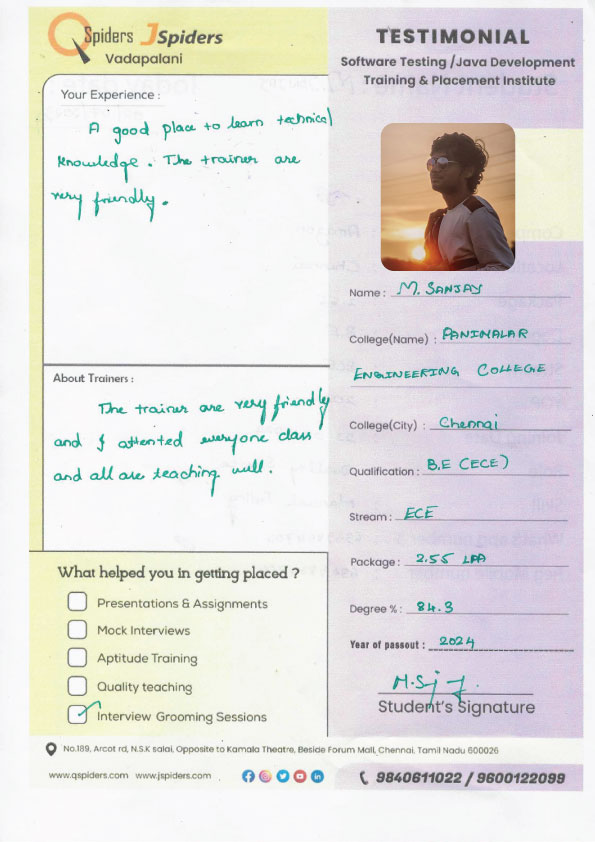 QSpiders JSpiders
Vadapalani
TESTIMONIAL
Software Testing /Java Development
Training & Placement Institute
Your Experience :
A good place to learn technical
knowledge. The trainer are
very friendly.
Name : M. SANJAY
College(Name) : PANIMALAR
ENGINEERING COLLEGE
About Trainers :
The trainer are very friendly
and I attented everyone class
and all are teaching well.
College(City) : Chennai
Qualification : B.E (ECE)
Stream : ECE
Package : 2.55 LPA
Degree % : 84.3
Year of passout : 2024
What helped you in getting placed ?
Presentations & Assignments
Mock Interviews
Aptitude Training
Quality teaching
Interview Grooming Sessions
Student's Signature
No.189, Arcot rd, N.S.K salai, Opposite to Kamala Theatre, Beside Forum Mall, Chennai, Tamil Nadu 600026
www.qspiders.com www.jspiders.com
9840611022 / 9600122099